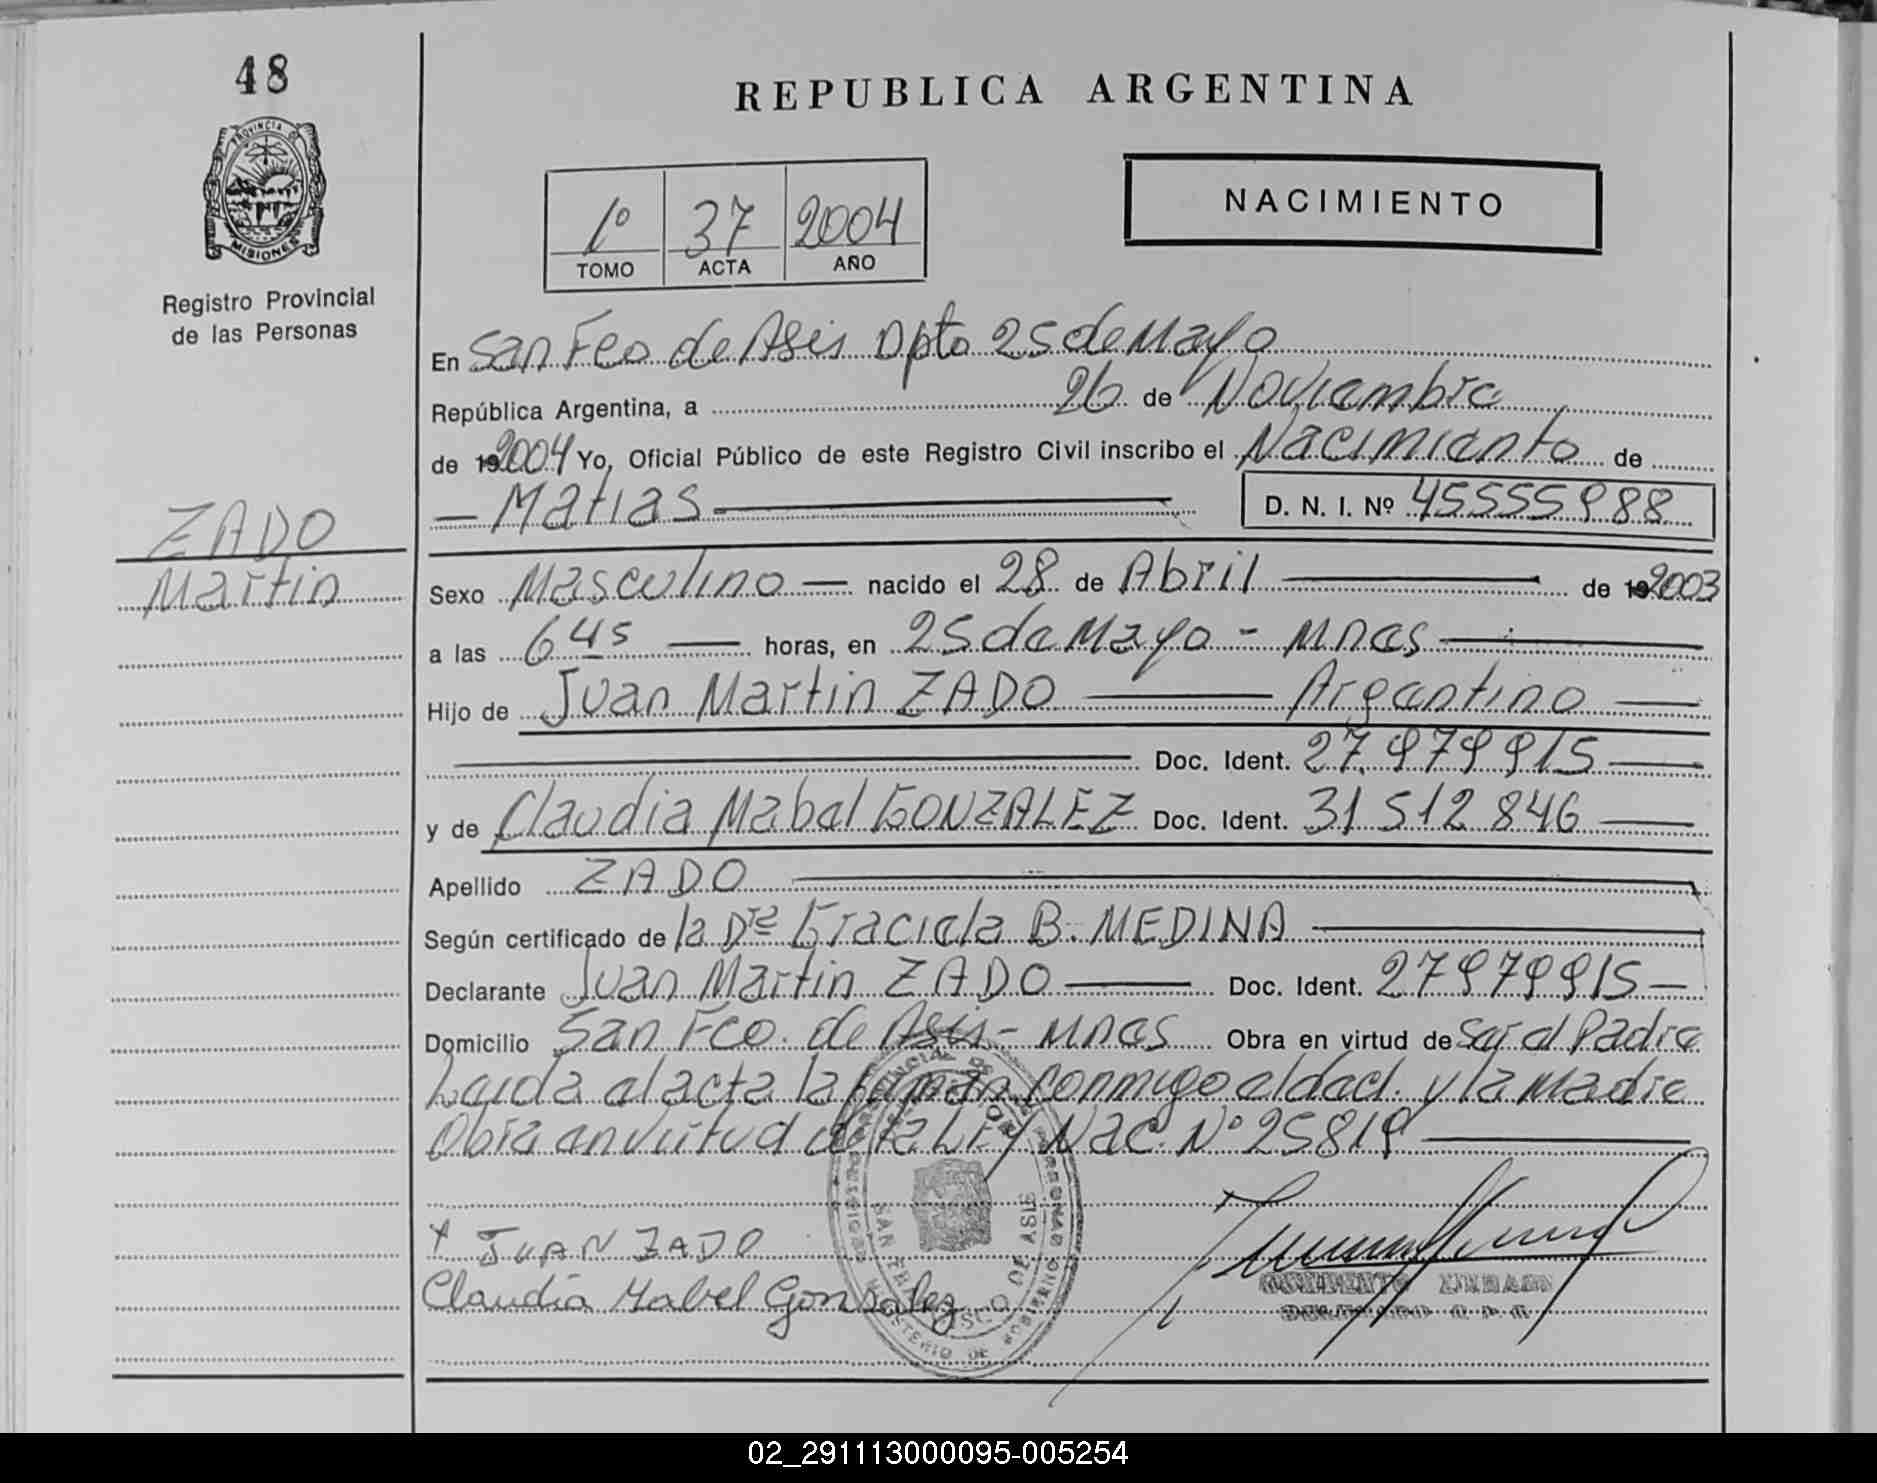 48
REPUBLICA ARGENTINA
PROVINCIA DE
MISIONES
Registro Provincial
de las Personas
1º 37 2004
TOMO ACTA AÑO
NACIMIENTO
En San Fco de Asis Dpto 25 de Mayo
República Argentina, a 26 de Noviembre
de 192004 Yo, Oficial Público de este Registro Civil inscribo el Nacimiento de
Matias D. N. I. Nº 45555988
ZADO
Martin
Sexo Masculino nacido el 28 de Abril de 192003
a las 6 45 horas, en 25 de Mayo - Mnes
Hijo de Juan Martin ZADO Argentino
Doc. Ident. 27.979915
y de Claudia Mabel GONZALEZ Doc. Ident. 31 512 846
Apellido ZADO
Según certificado de la Dra Graciela B. MEDINA
Declarante Juan Martin ZADO Doc. Ident. 27979915
Domicilio San Fco. de Asis - Mnes Obra en virtud de Ser el Padre
Leida el acta la firman conmigo el decl. y la Madre
Obra en virtud de la LEY Nac. Nº 25819
X JUAN ZADO
Claudia Mabel Gonzalez
SAN FRANCISCO DE ASIS
MINISTERIO DE GOBIERNO
02_291113000095-005254